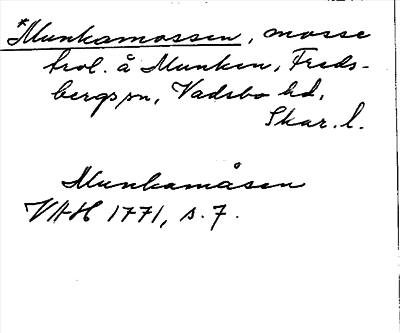 *Munkamossen, mosse
trol. å Munken, Freds-
bergs sn, Vadsbo hd,
Skar. l.
Munkamåsen
VAH 1771, s. 7.